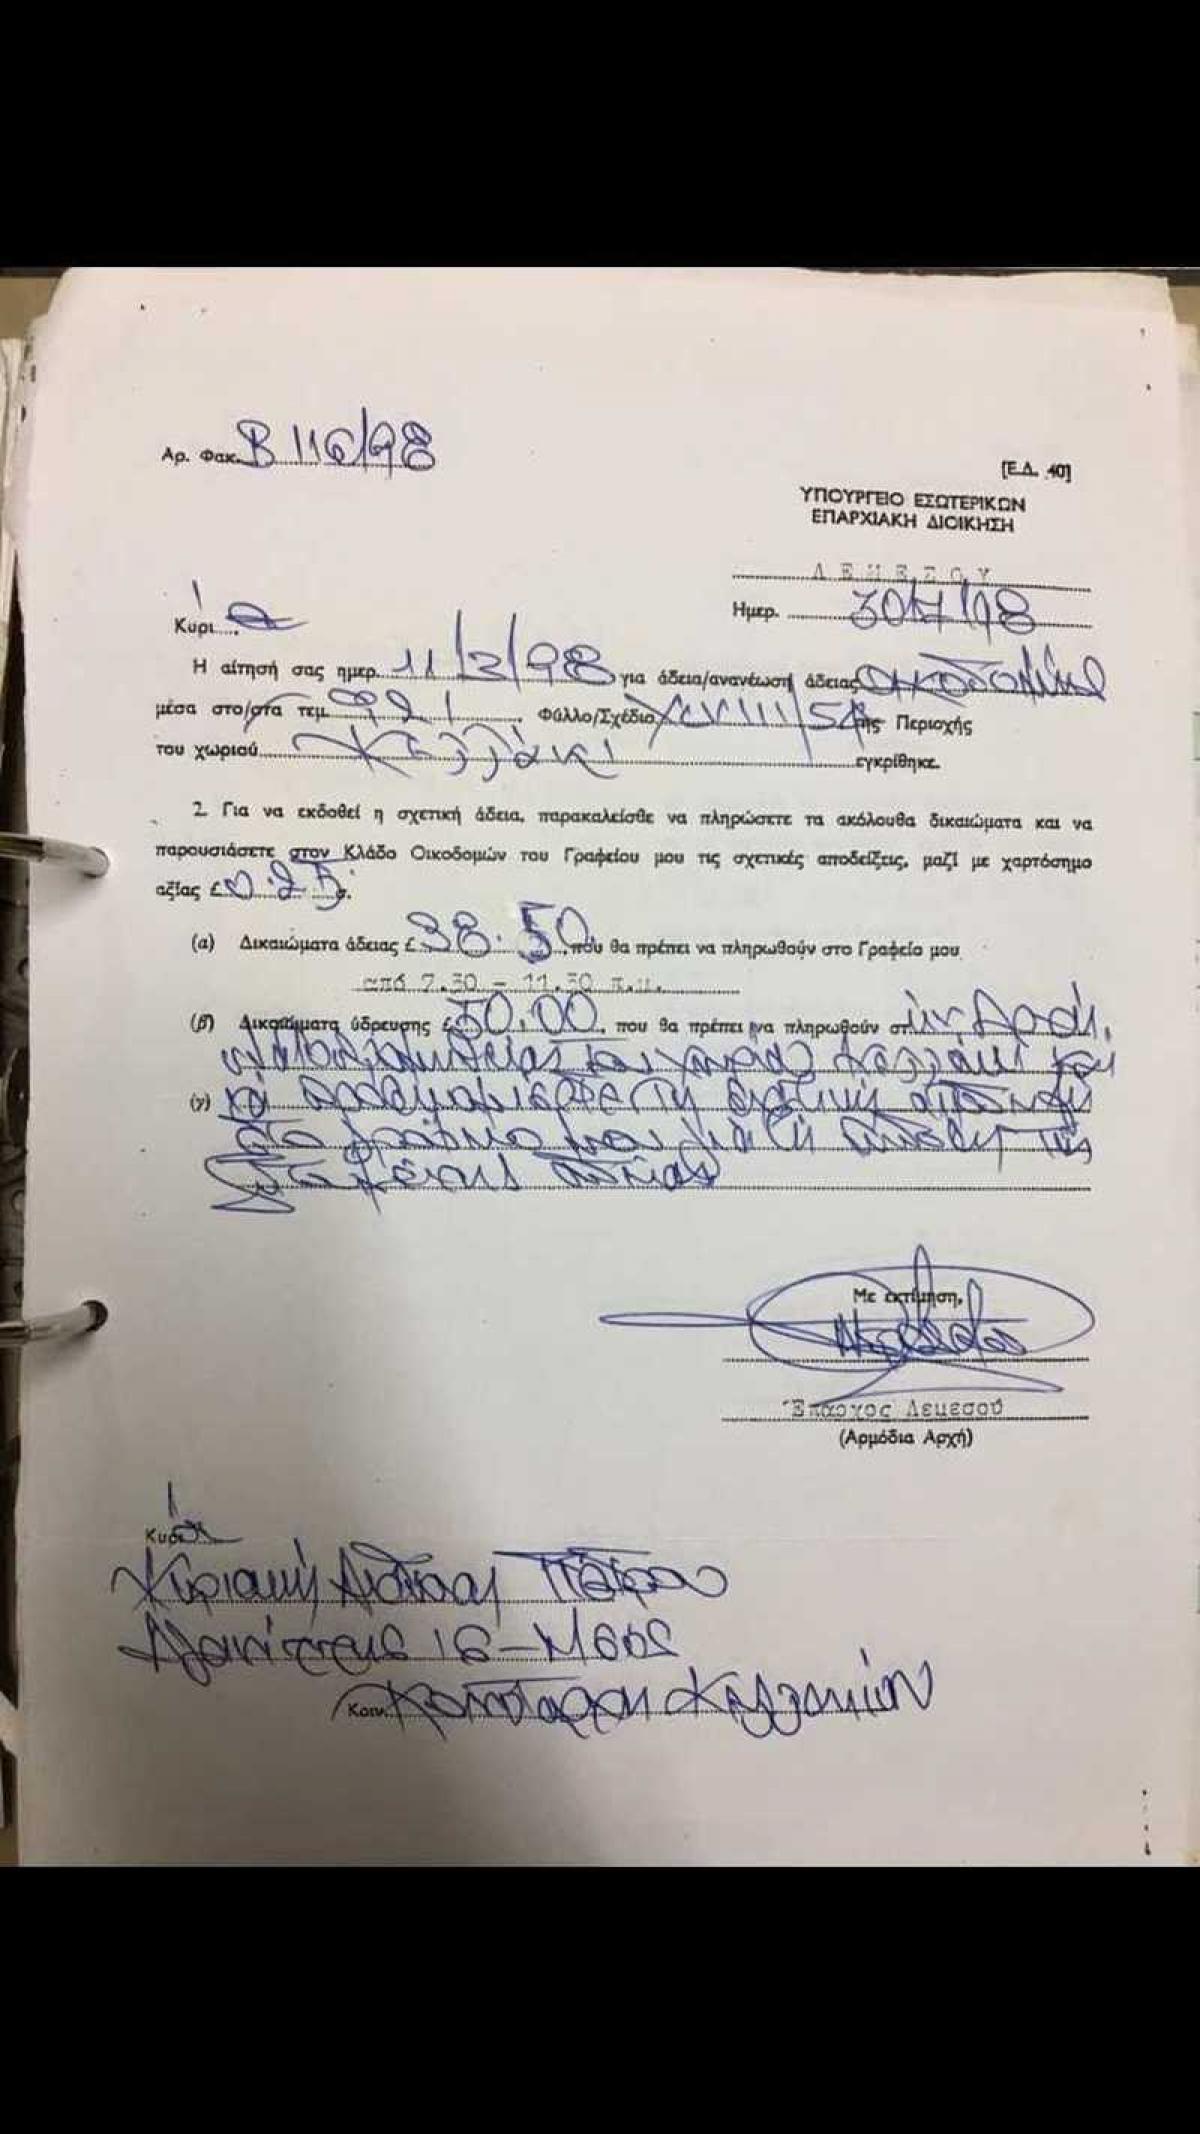 Αρ. Φακ. Β 116/98
[Ε.Δ. 40]
ΥΠΟΥΡΓΕΙΟ ΕΣΩΤΕΡΙΚΩΝ
ΕΠΑΡΧΙΑΚΗ ΔΙΟΙΚΗΣΗ
ΛΕΜΕΣΟΥ
Ημερ. 30/7/98
Κύρι α
Η αίτησή σας ημερ. 11/2/98 για άδεια/ανανέωση άδειας οικοδομής
μέσα στο/στα τεμ. 991 Φύλλο/Σχέδιο XLVIII/54 της Περιοχής
του χωριού Κελλάκι εγκρίθηκε.
2. Για να εκδοθεί η σχετική άδεια, παρακαλείσθε να πληρώσετε τα ακόλουθα δικαιώματα και να
παρουσιάσετε στον Κλάδο Οικοδομών του Γραφείου μου τις σχετικές αποδείξεις, μαζί με χαρτόσημο
αξίας £0.25 σ.
(α) Δικαιώματα άδειας £ 38.50 που θα πρέπει να πληρωθούν στο Γραφείο μου
από 7.30 - 11.30 π.μ.
(β) Δικαιώματα ύδρευσης £50.00, που θα πρέπει να πληρωθούν στ ην
του χωριού Κελλάκι και
(γ) να τη σχετική
στο
Με εκτίμηση,
Έπαρχος Λεμεσού
(Αρμόδια Αρχή)
Κυρία
Κυριακή Πέτρου
16-Μ602
Κοιν. Κοινοτάρχη Κελλακίου